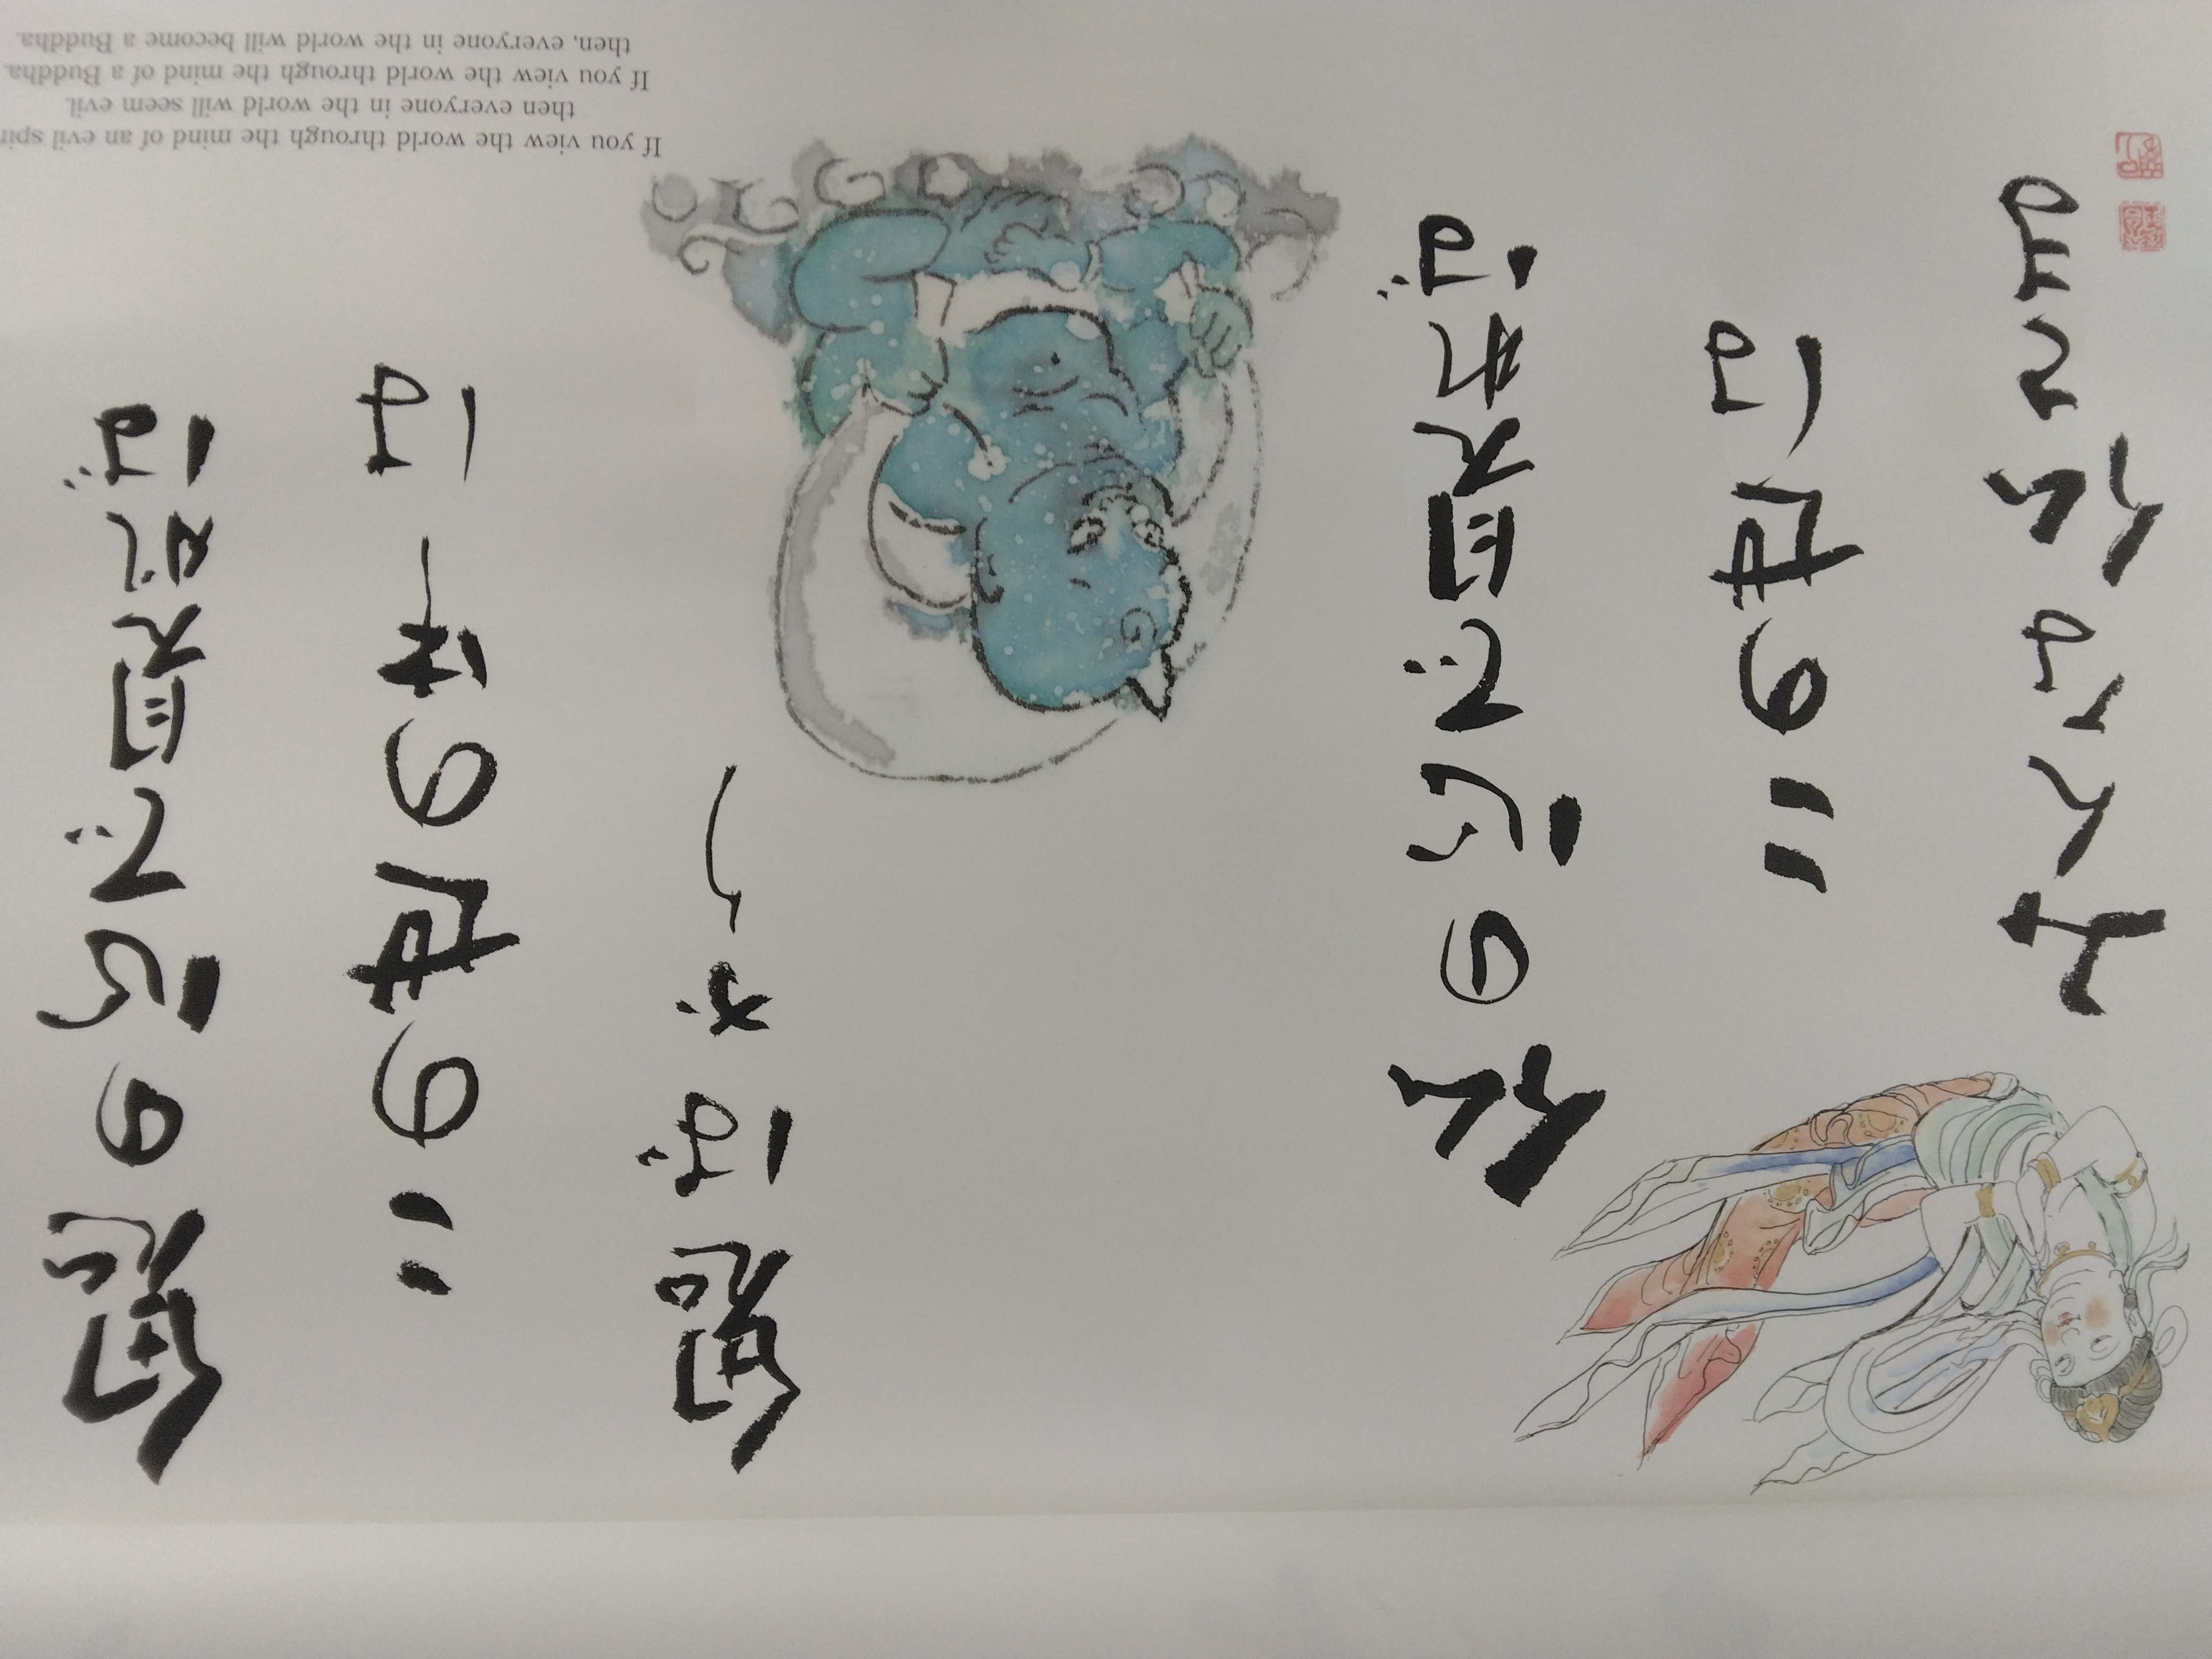 鬼の心で見れば
この世の中は
鬼ばかり
仏の心で見れば
この世は
みんな仏さま
If you view the world through the mind of an evil
then everyone in the world will seem evil.
If you view the world through the mind of a Buddha,
then, everyone in the world will become a Buddha.